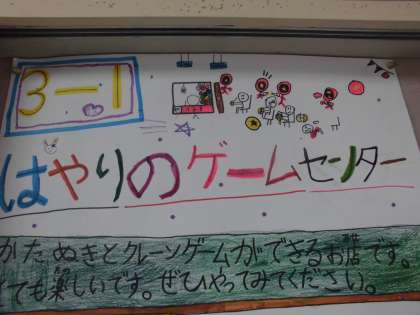 3-1
はやりのゲームセンター
かたぬきとクレーンゲームができるお店です。
ても楽しいです。ぜひやってみてください。